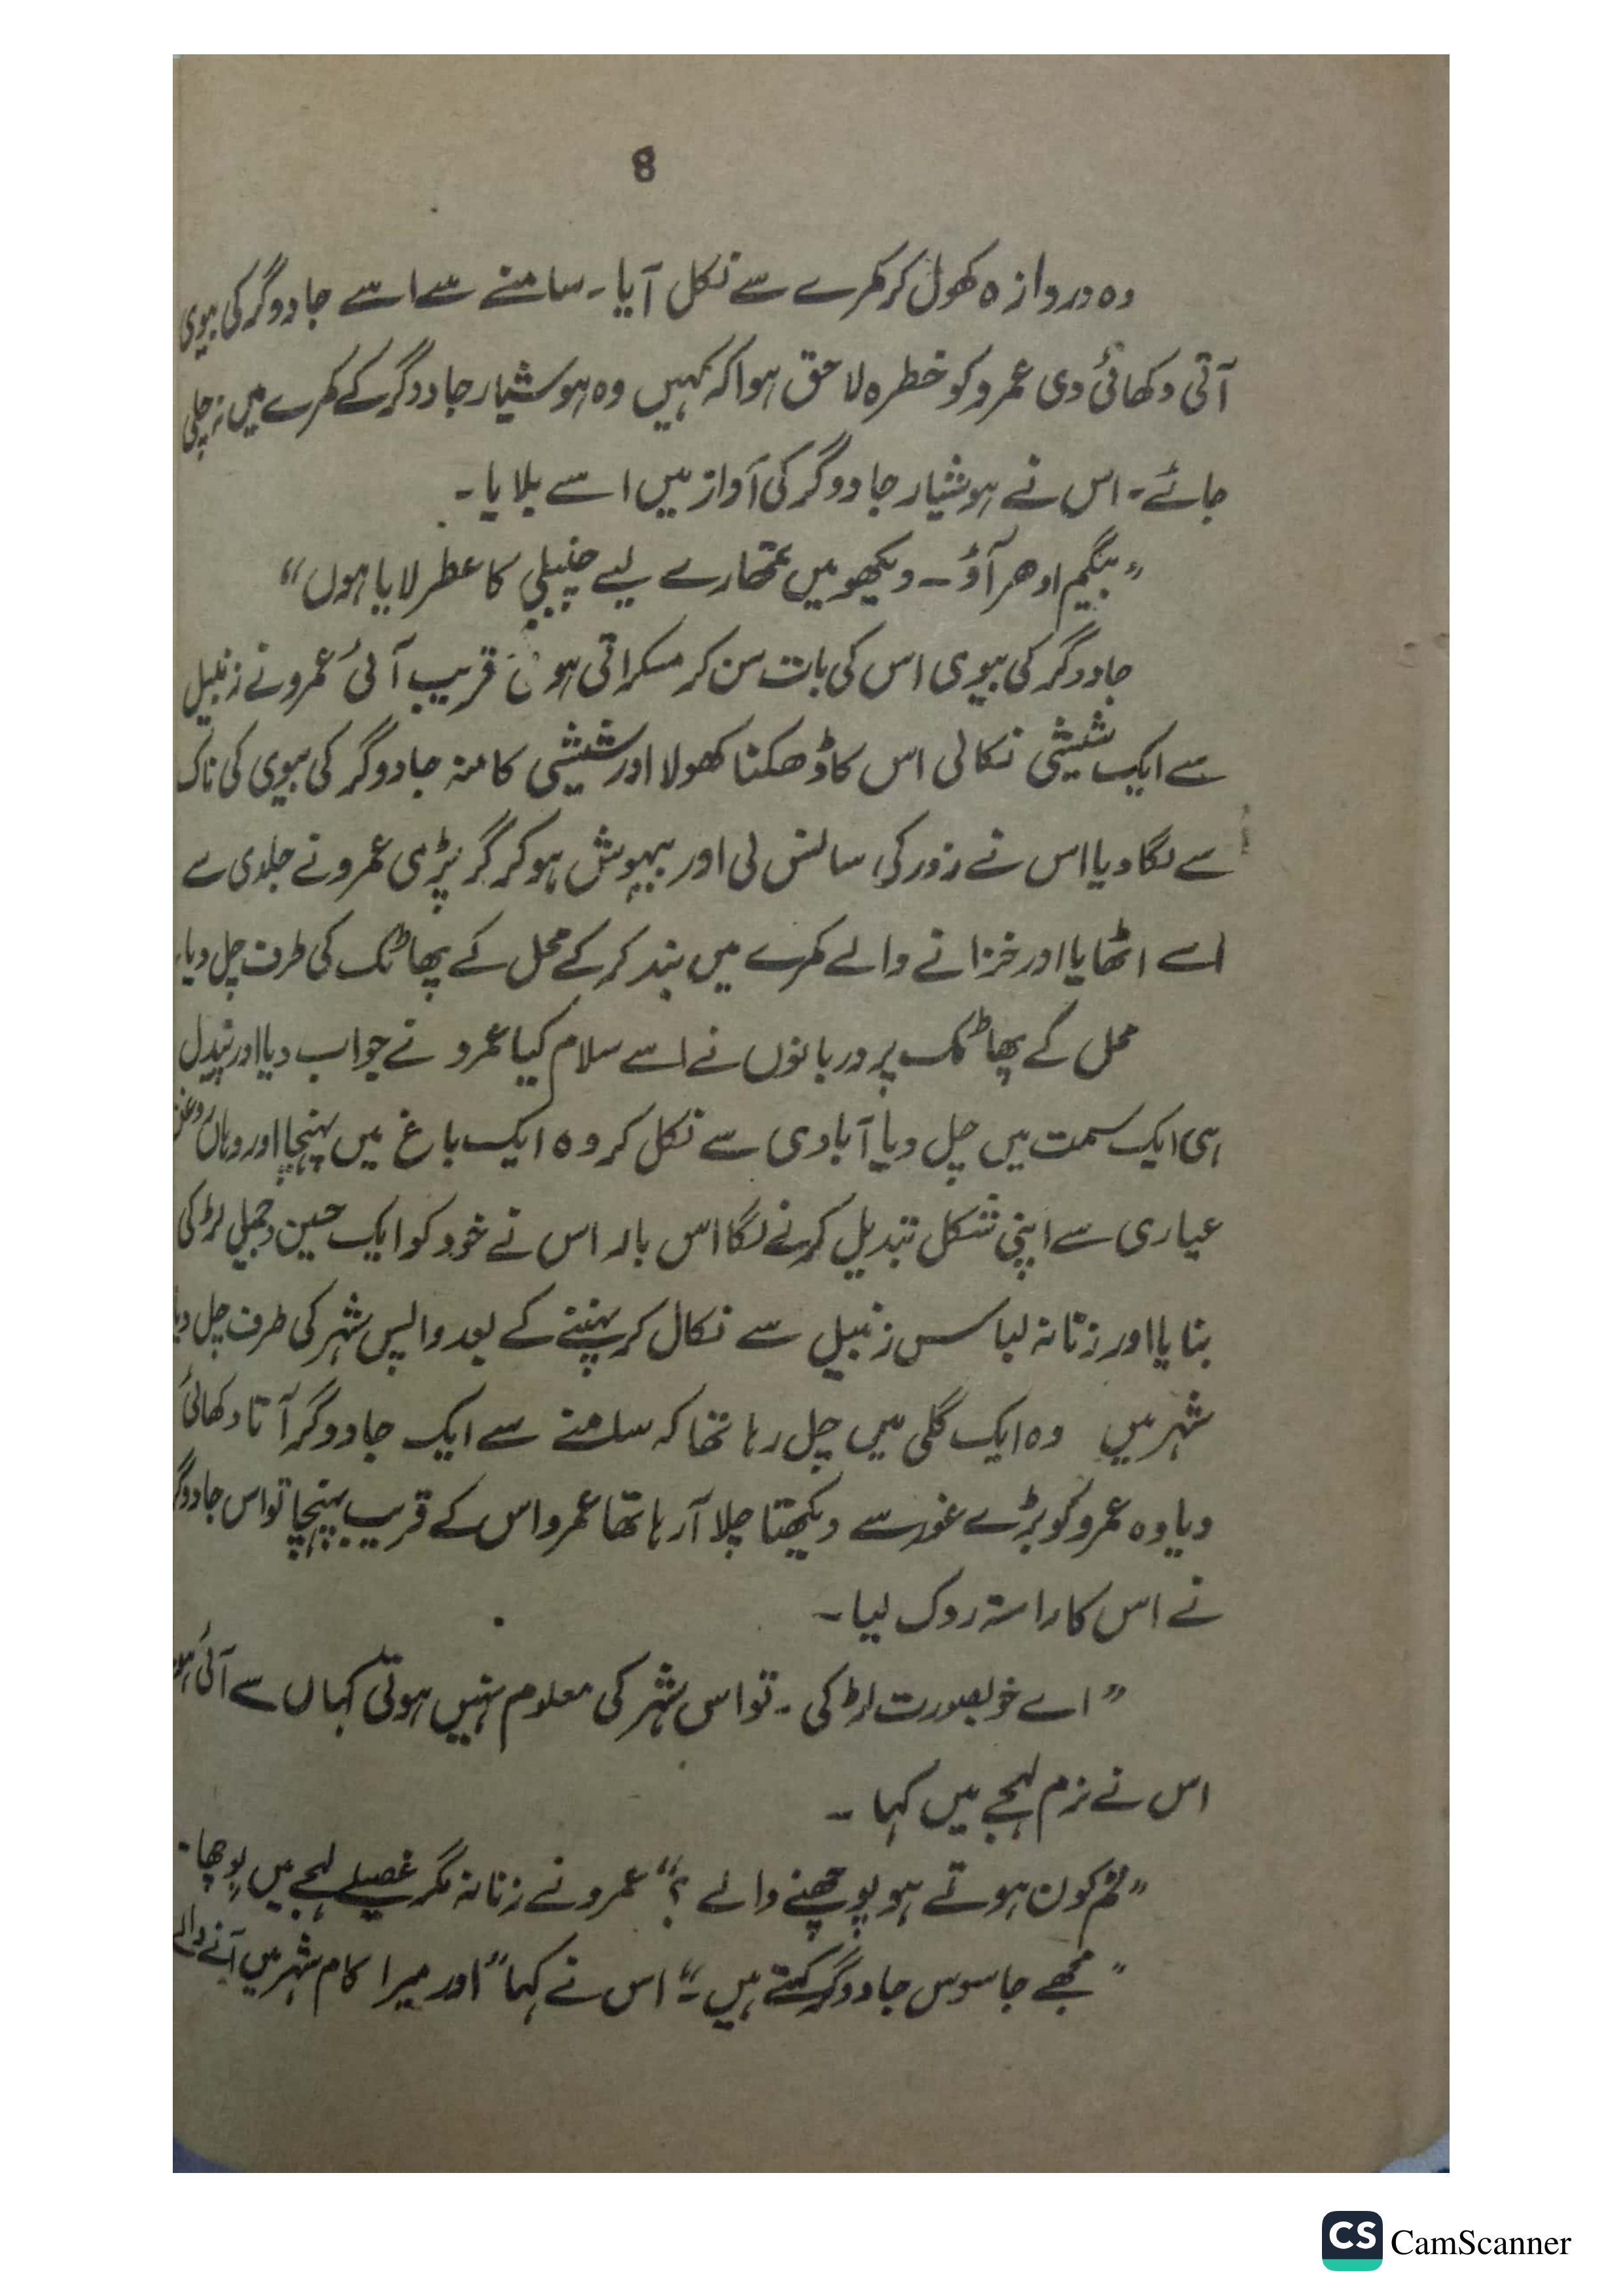 8
وہ دروازہ کھول کر کمرے سے نکل آیا۔ سامنے سے اسے جادوگر کی بیوی
آتی دکھائی دی عمرو کو خطرہ لاحق ہوا کہ کہیں وہ ہوشیار جادوگر کے کمرے میں نہ چلی
جائے۔ اس نے ہوشیار جادوگر کی آواز میں اسے بلایا۔
”بیگم ادھر آؤ۔ دیکھو میں تمھارے لیے چنبیلی کا عطر لایا ہوں“
جادوگر کی بیوی اس کی بات سن کر مسکراتی ہوئی قریب آئی عمرو نے زنبیل
سے ایک شیشی نکالی اس کا ڈھکنا کھولا اور شیشی کا منہ جادوگر کی بیوی کی ناک
سے لگا دیا اس نے زور کی سانس لی اور بیہوش ہو کر گر پڑی عمرو نے جلدی سے
اسے اٹھایا اور خزانے والے کمرے میں بند کر کے محل کے پھاٹک کی طرف چل دیا۔
محل کے پھاٹک پر دربانوں نے اسے سلام کیا عمرو نے جواب دیا اور پیدل
ہی ایک سمت میں چل دیا آبادی سے نکل کر وہ ایک باغ میں پہنچا اور وہاں روغن
عیاری سے اپنی شکل تبدیل کرنے لگا اس بار اس نے خود کو ایک حسین و جمیل لڑکی
بنایا اور زنانہ لباس زنبیل سے نکال کر پہننے کے بعد واپس شہر کی طرف چل دیا
شہر میں وہ ایک گلی میں چل رہا تھا کہ سامنے سے ایک جادوگر آتا دکھائی
دیا وہ عمرو کو بڑے غور سے دیکھتا چلا آ رہا تھا عمرو اس کے قریب پہنچا تو اس جادوگر
نے اس کا راستہ روک لیا۔
”اے خوبصورت لڑکی۔ تو اس شہر کی معلوم نہیں ہوتی کہاں سے آئی ہو
اس نے نرم لہجے میں کہا۔
”تم کون ہوتے ہو پوچھنے والے؟“ عمرو نے زنانہ مگر غصیلے لہجے میں پوچھا۔
”مجھے جاسوس جادوگر کہتے ہیں۔“ اس نے کہا ”اور میرا کام شہر میں آنے والے
CS CamScanner